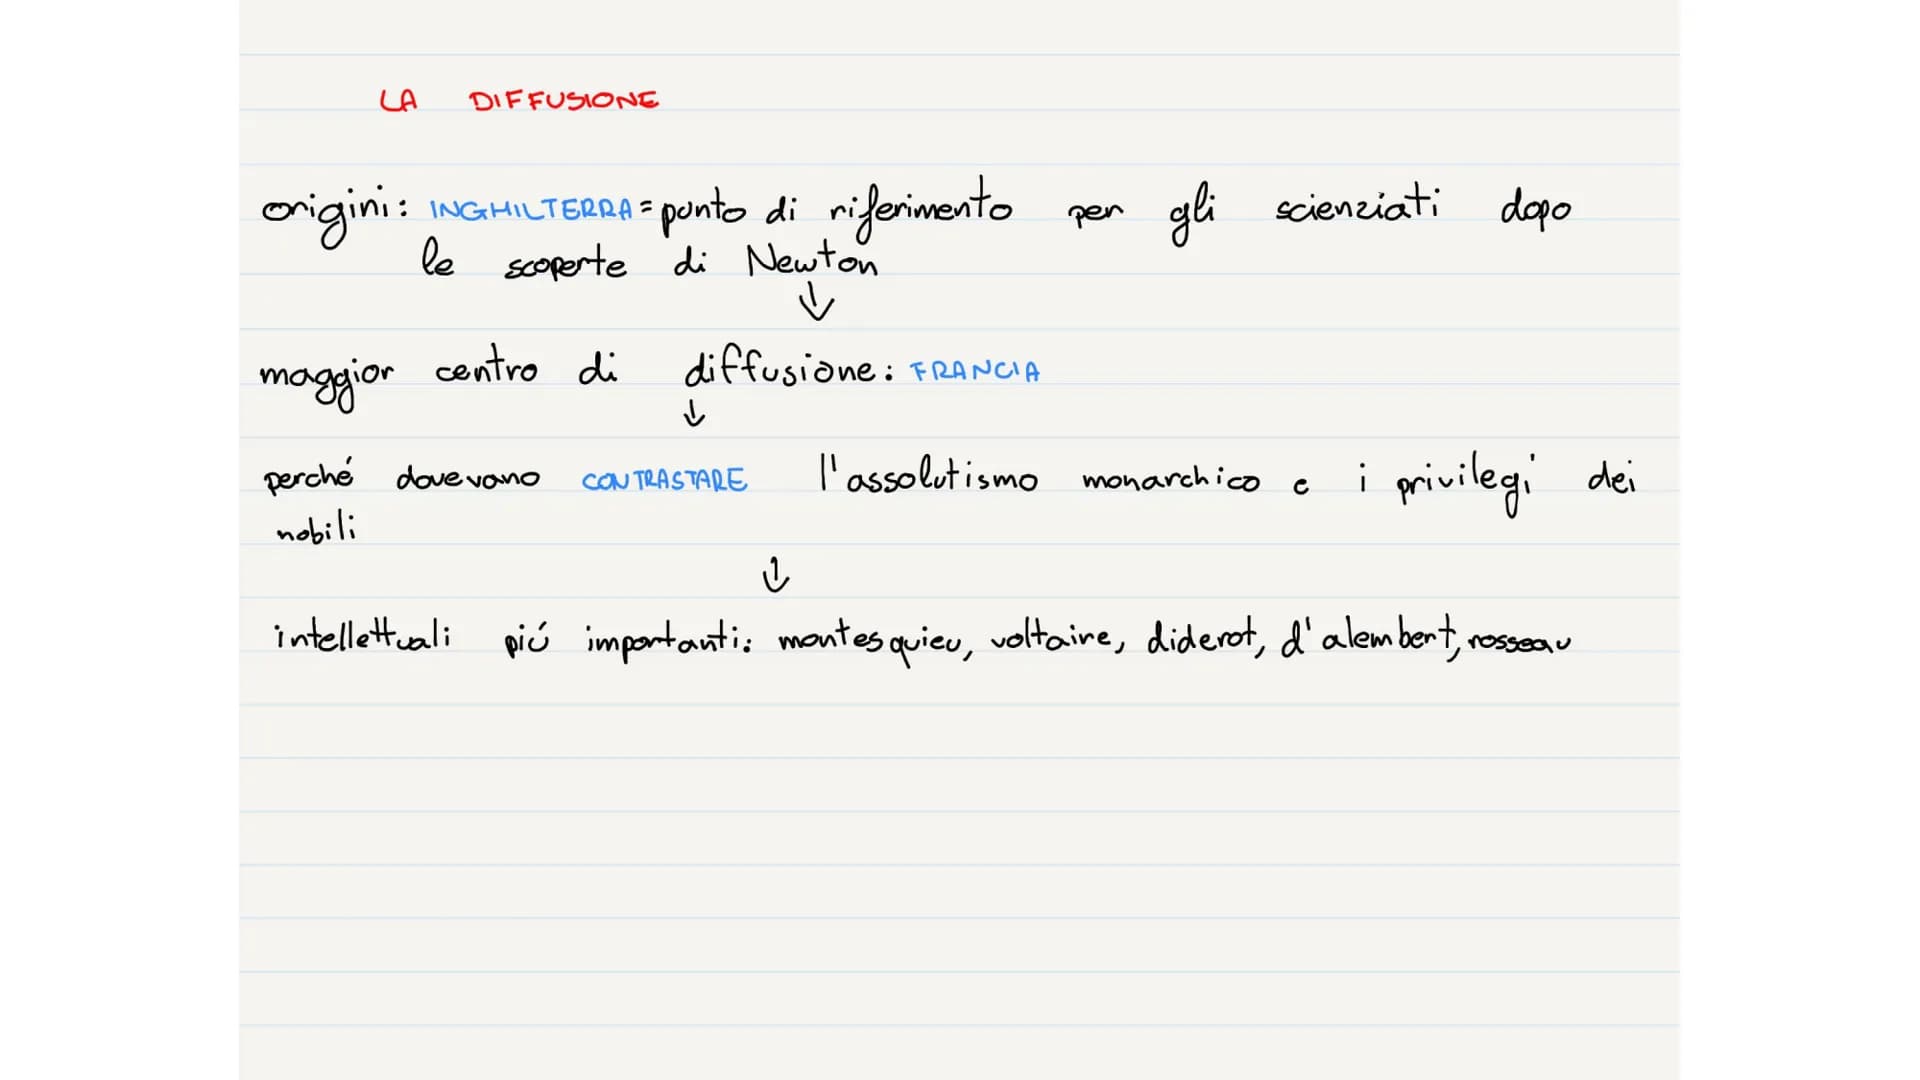 LA DIFFUSIONE
origini: INGHILTERRA = punto di riferimento per gli scienziati dopo
le scoperte di Newton
↓
maggior centro di diffusione: FRANCIA
↓
perché dovevano CONTRASTARE l'assolutismo monarchico e i privilegi dei
nobili
↓
intellettuali piú importanti: montesquieu, voltaire, diderot, d'alembert, rosseau